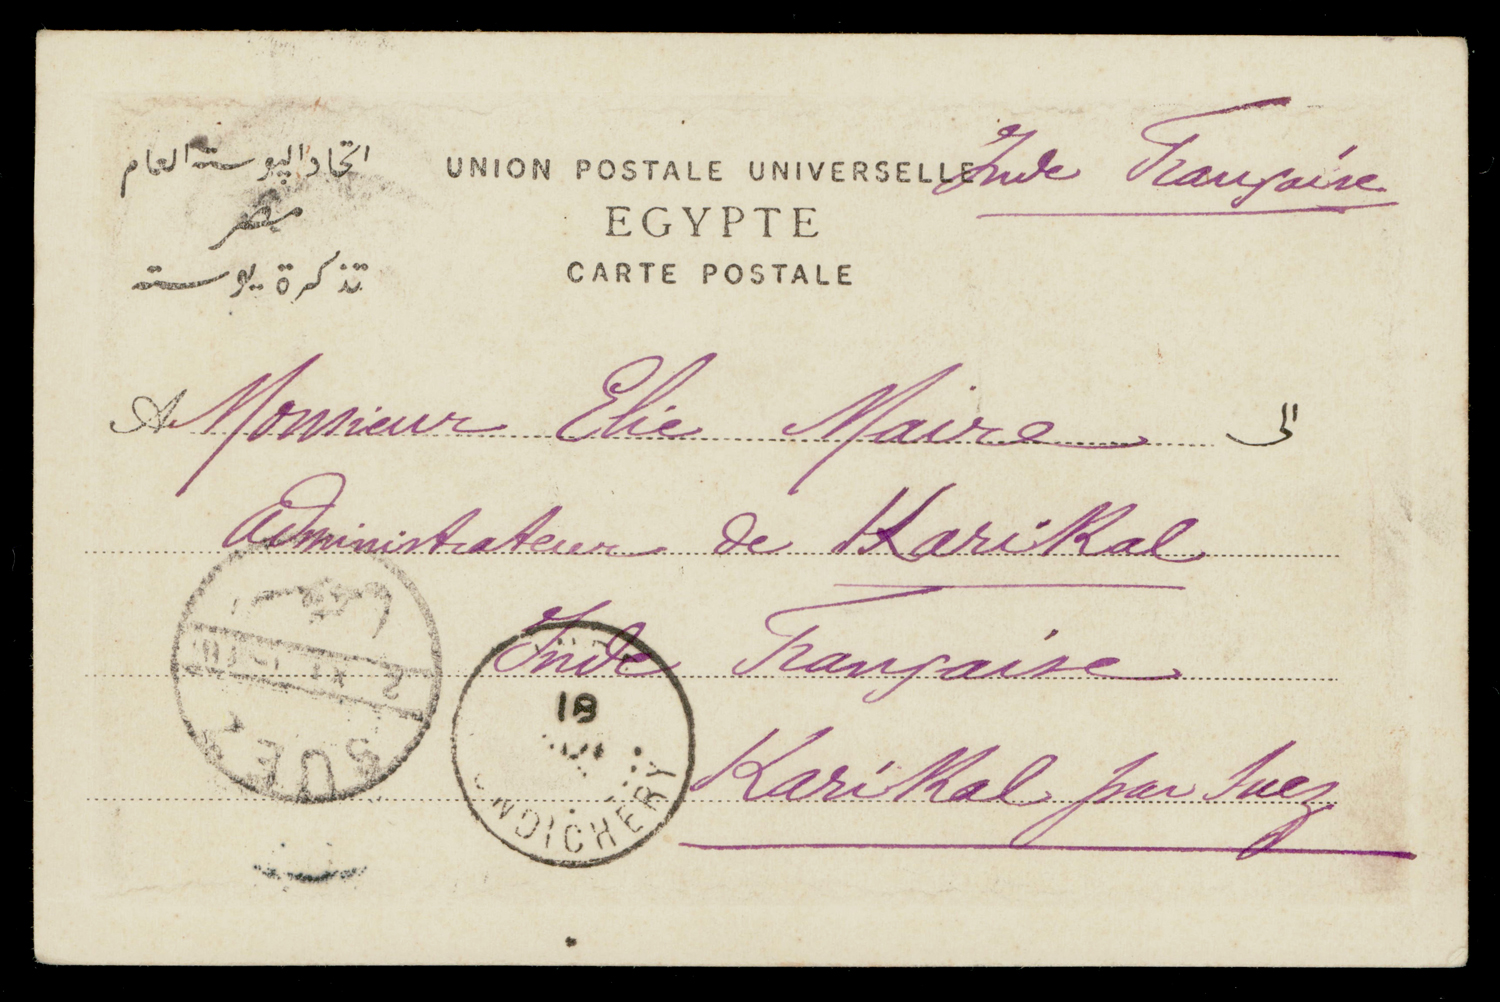 اتحاد البوستة العام
مصر
تذكرة بوستة
UNION POSTALE UNIVERSELLE
EGYPTE
CARTE POSTALE
Inde Française
A Monsieur Elie Maire الى
administrateur de Karikal
Inde Française
Karikal par Suez
SUEZ
2
18
ONDICHERY